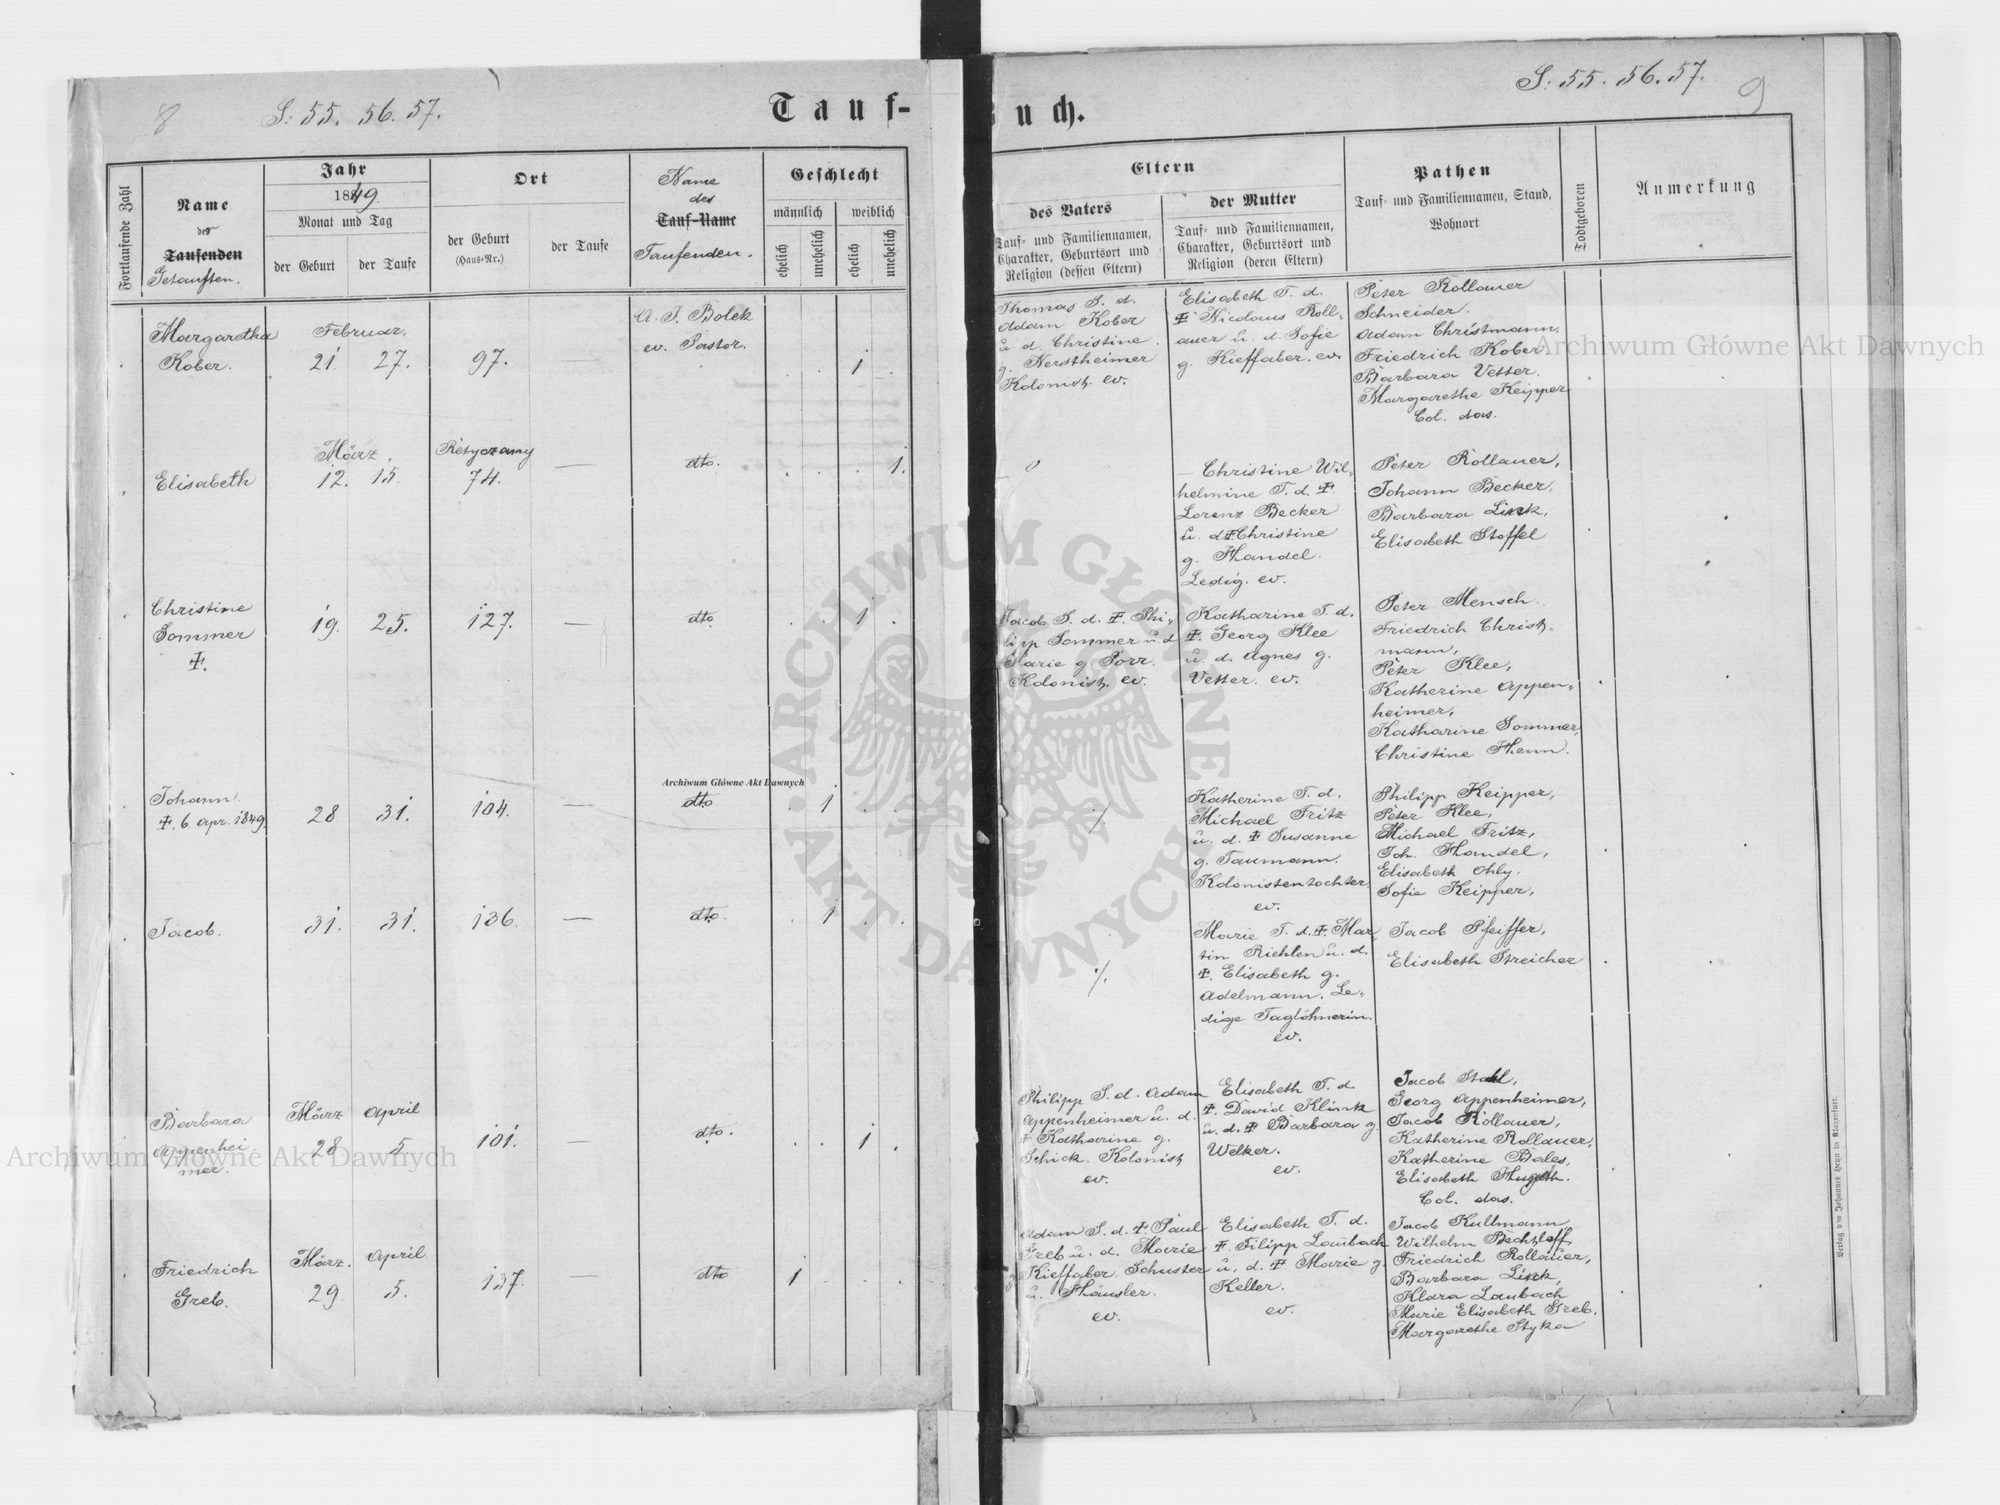 8
S: 55. 56. 57.
Tauf-
Fortlaufende Zahl
Name
der
Taufenden
Getauften.
Jahr
1849.
Monat und Tag
der Geburt
der Taufe
Ort
der Geburt
(Haus-Nr.)
der Taufe
Name
des
Tauf-Name
Taufenden.
Geschlecht
männlich
weiblich
ehelich
unehelich
ehelich
unehelich
Margaretha
Kober.
Februar.
21 27. 97. —
A. J. Bolek
ev. Pastor.
1
Elisabeth
März.
12. 15.
Retyczany
74. —
dto.
1.
Christine
Sommer
‡.
19. 25. 127. —
dto
1
Johann
‡. 6. Apr. 1849.
28 31. 104. —
dto
1
Jacob.
31. 31. 136. —
dto.
1
Barbara
Appenhei
mer.
März April
28 5 101. —
dto.
1
Friedrich
Greb.
März. April
29 5. 137. —
dto
1
S: 55. 56. 57.
9
uch.
Eltern
des Vaters
Tauf- und Familiennamen,
Charakter, Geburtsort und
Religion (dessen Eltern)
der Mutter
Tauf- und Familiennamen,
Charakter, Geburtsort und
Religion (deren Eltern)
Pathen
Tauf- und Familiennamen, Stand,
Wohnort
Todtgeboren
Anmerkung
Thomas S. d.
Adam Kober
u. d. Christine
g. Nerstheimer
Kolonist. ev.
Elisabeth T. d.
‡ Nicolaus Roll-
auer u. d. Sofie
g. Kieffaber. ev.
Peter Rollauer
Schneider.
Adam Christmann,
Friedrich Kober.
Barbara Vetter.
Margarethe Keipper
Col. das.
Christine Wil-
helmine T. d. ‡
Lorenz Becker
u. d ‡ Christine
g. Handel.
Ledig. ev.
Peter Rollauer,
Johann Becker,
Barbara Link,
Elisabeth Stoffel
Jacob S. d. ‡. Phi-
lipp Sommer u. d
Marie g Porr.
Kolonist. ev.
Katharine T. d.
‡. Georg Klee
u. d. Agnes g.
Vetter. ev.
Peter Mensch.
Friedrich Christ-
mann,
Peter Klee,
Katherine Appen-
heimer,
Katharine Sommer,
Christine Henn.
/.
Katherine T. d.
Michael Fritz
u. d. ‡ Susanne
g. Taumann.
Kolonistentochter
ev.
Philipp Keipper,
Peter Klee,
Michael Fritz,
Joh. Handel,
Elisabeth Ohly.
Sofie Keipper,
/.
Marie T. d. ‡. Mar-
tin Riehlen u. d.
‡. Elisabeth g.
Adelmann. Le-
dige Taglöhnerin.
ev.
Jacob Pfeiffer,
Elisabeth Streicher
Philipp S. d. Adam
Appenheimer u. d.
‡ Katharine g.
Schick. Kolonist
ev.
Elisabeth T. d.
‡. David Klink
u. d. ‡ Barbara g.
Welker.
ev.
Jacob Stahl,
Georg Appenheimer,
Jacob Rollauer,
Katherine Rollauer,
Katherine Bales,
Elisabeth
Col. das.
Adam S. d. ‡ Paul
Greb u. d. Marie
g. Kieffaber. Schuster
u. Häusler.
ev.
Elisabeth T. d.
‡. Filipp Laubach
u. d. ‡ Marie g.
Keller.
ev.
Jacob Kullmann,
Wilhelm Bechtloff,
Friedrich Rollauer,
Barbara Link,
Klara Laubach
Marie Elisabeth Greb.
Margarethe Styka
Verlag von Johannes Heyn in Klagenfurt.
Archiwum Główne Akt Dawnych
Archiwum Główne Akt Dawnych
Archiwum Główne Akt Dawnych
ARCHIWUM GŁÓWNE
AKT DAWNYCH